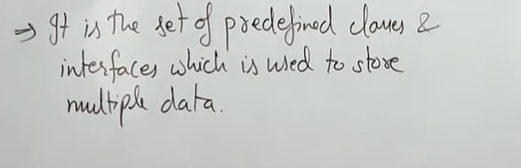 ⇒ It is the set of predefined classes &
interfaces which is used to store
multiple data.